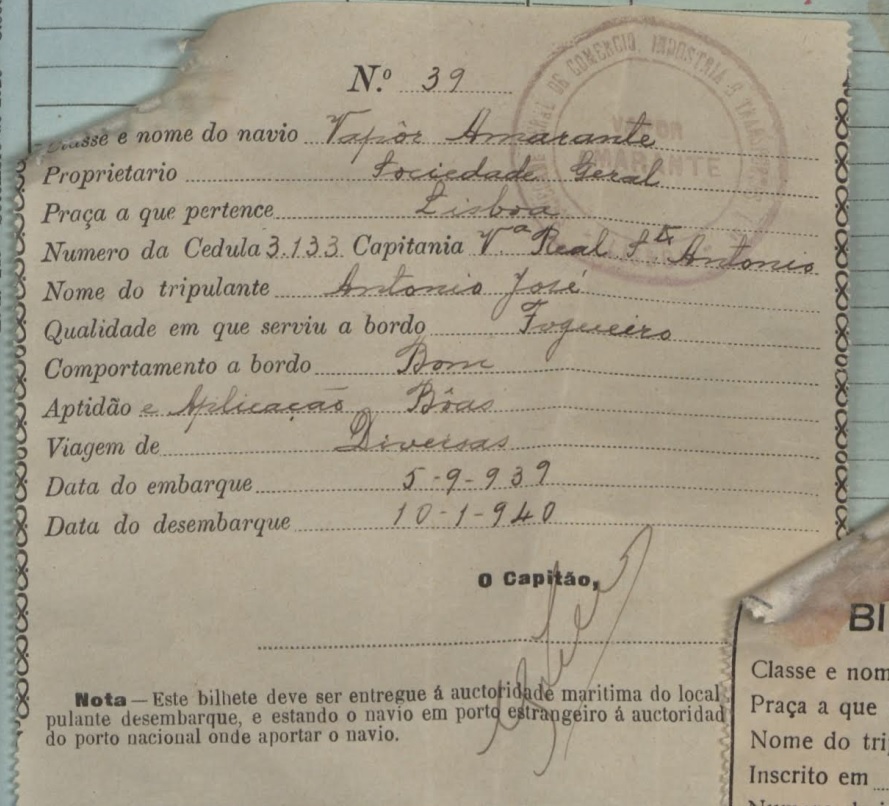 N.º 39
Classe e nome do navio Vapôr Amarante
Proprietario Sociedade Geral
Praça a que pertence Lisboa
Numero da Cedula 3.133 Capitania Vª Real Stº Antonio
Nome do tripulante Antonio José
Qualidade em que serviu a bordo Fogueiro
Comportamento a bordo Bom
Aptidão e Aplicação Bôas
Viagem de Diversas
Data do embarque 5-9-939
Data do desembarque 10-1-940
O Capitão,
Nota — Este bilhete deve ser entregue á auctoridade maritima do local
pulante desembarque, e estando o navio em porto estrangeiro á auctoridad
do porto nacional onde aportar o navio.
GERAL DE COMERCIO, INDUSTRIA E
VAPOR
AMARANTE
BI
Classe e nom
Praça a que
Nome do tri
Inscrito em